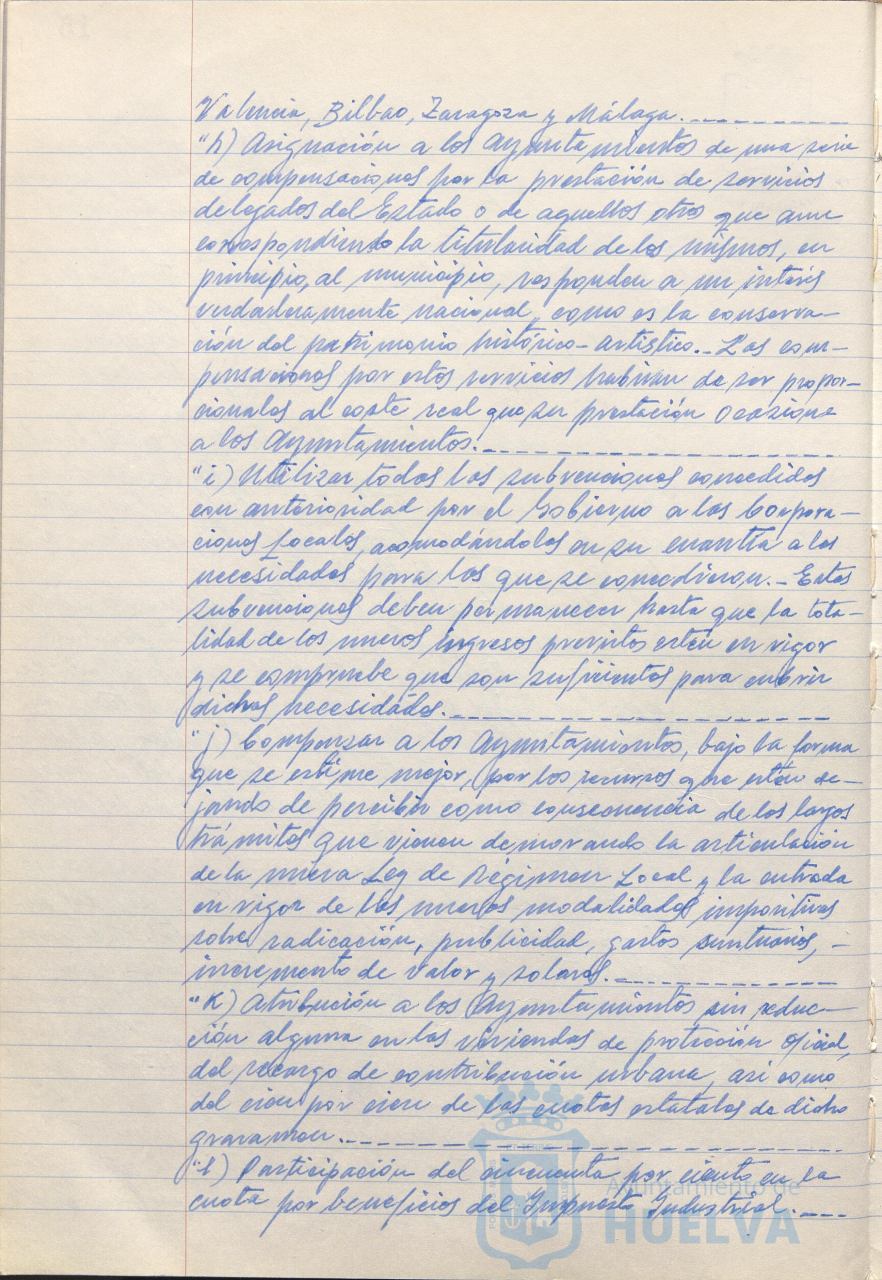 Valencia, Bilbao, Zaragoza y Málaga.
"h) Asignación a los Ayuntamientos de una serie
de compensaciones por la prestación de servicios
delegados del Estado o de aquellos otros que aun
correspondiendo la titularidad de los mismos, en
principio, al municipio, responden a un interés
verdaderamente nacional, como es la conserva-
ción del patrimonio histórico-artístico.- Las com-
pensaciones por estos servicios habrían de ser propor-
cionales al coste real que su prestación ocasione
a los Ayuntamientos.
"i) Utilizar todas las subvenciones concedidas
con anterioridad por el Gobierno a las Corpora-
ciones Locales, acomodándolas en su cuantía a las
necesidades para las que se concedieron.- Estas
subvenciones deben permanecer hasta que la tota-
lidad de los nuevos ingresos previstos estén en vigor
y se compruebe que son suficientes para cubrir
dichas necesidades.
"j) Compensar a los Ayuntamientos, bajo la forma
que se estime mejor, por los recursos que están de-
jando de percibir como consecuencia de los largos
trámites que vienen demorando la articulación
de la nueva Ley de Régimen Local y la entrada
en vigor de las nuevas modalidades impositivas
sobre radicación, publicidad, gastos suntuarios, -
incremento de valor y solares.
"K) Atribución a los Ayuntamientos sin reduc-
ción alguna en las viviendas de protección oficial,
del recargo de contribución urbana, asi como
del cien por cien de las cuotas estatales de dicho
gravamen.
"l) Participación del cincuenta por ciento en la
cuota por beneficios del Impuesto Industrial.
Ayuntamiento de
HUELVA